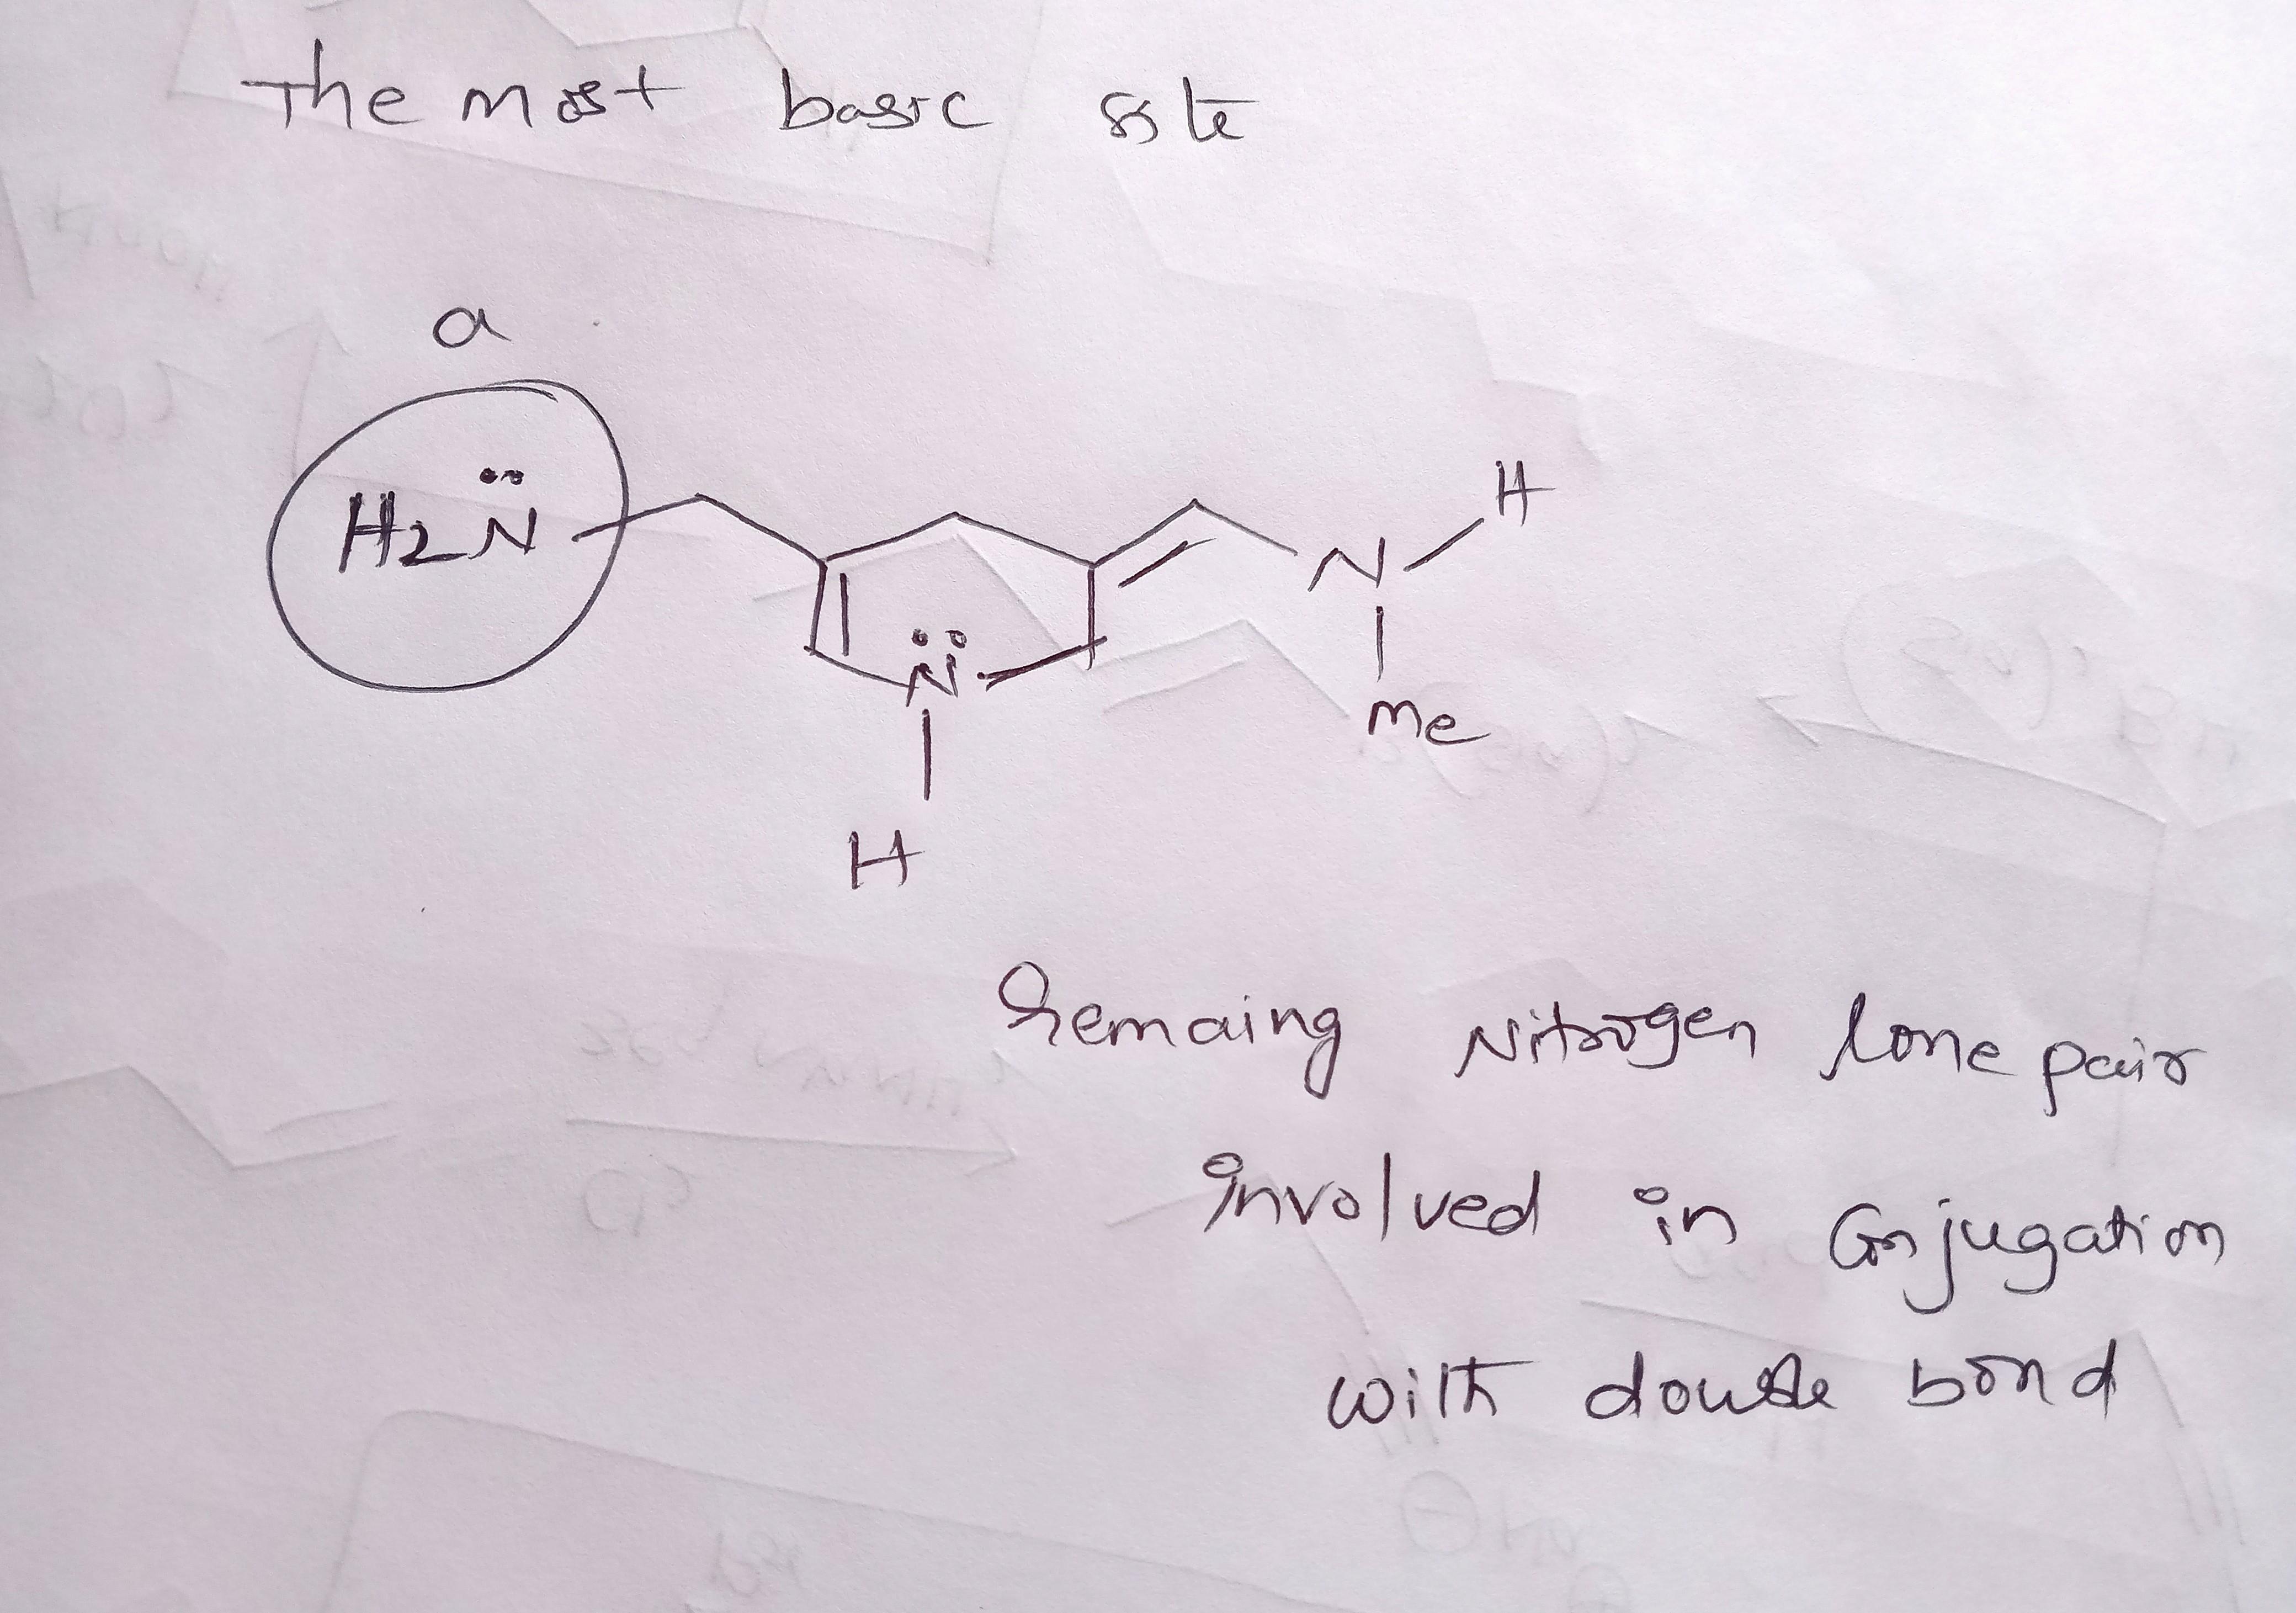 The most basic site
a
H2N
N
H
Me
N
H
Remaing Nitrogen lone pair
involved in Conjugation
with double bond